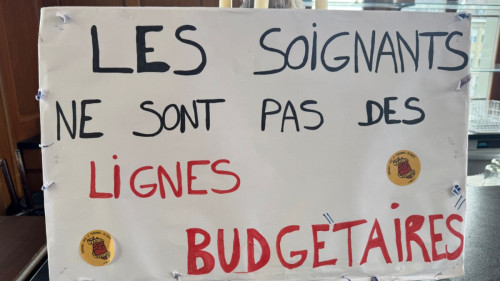 LES SOIGNANTS
NE SONT PAS DES
LIGNES
BUDGÈTAIRES